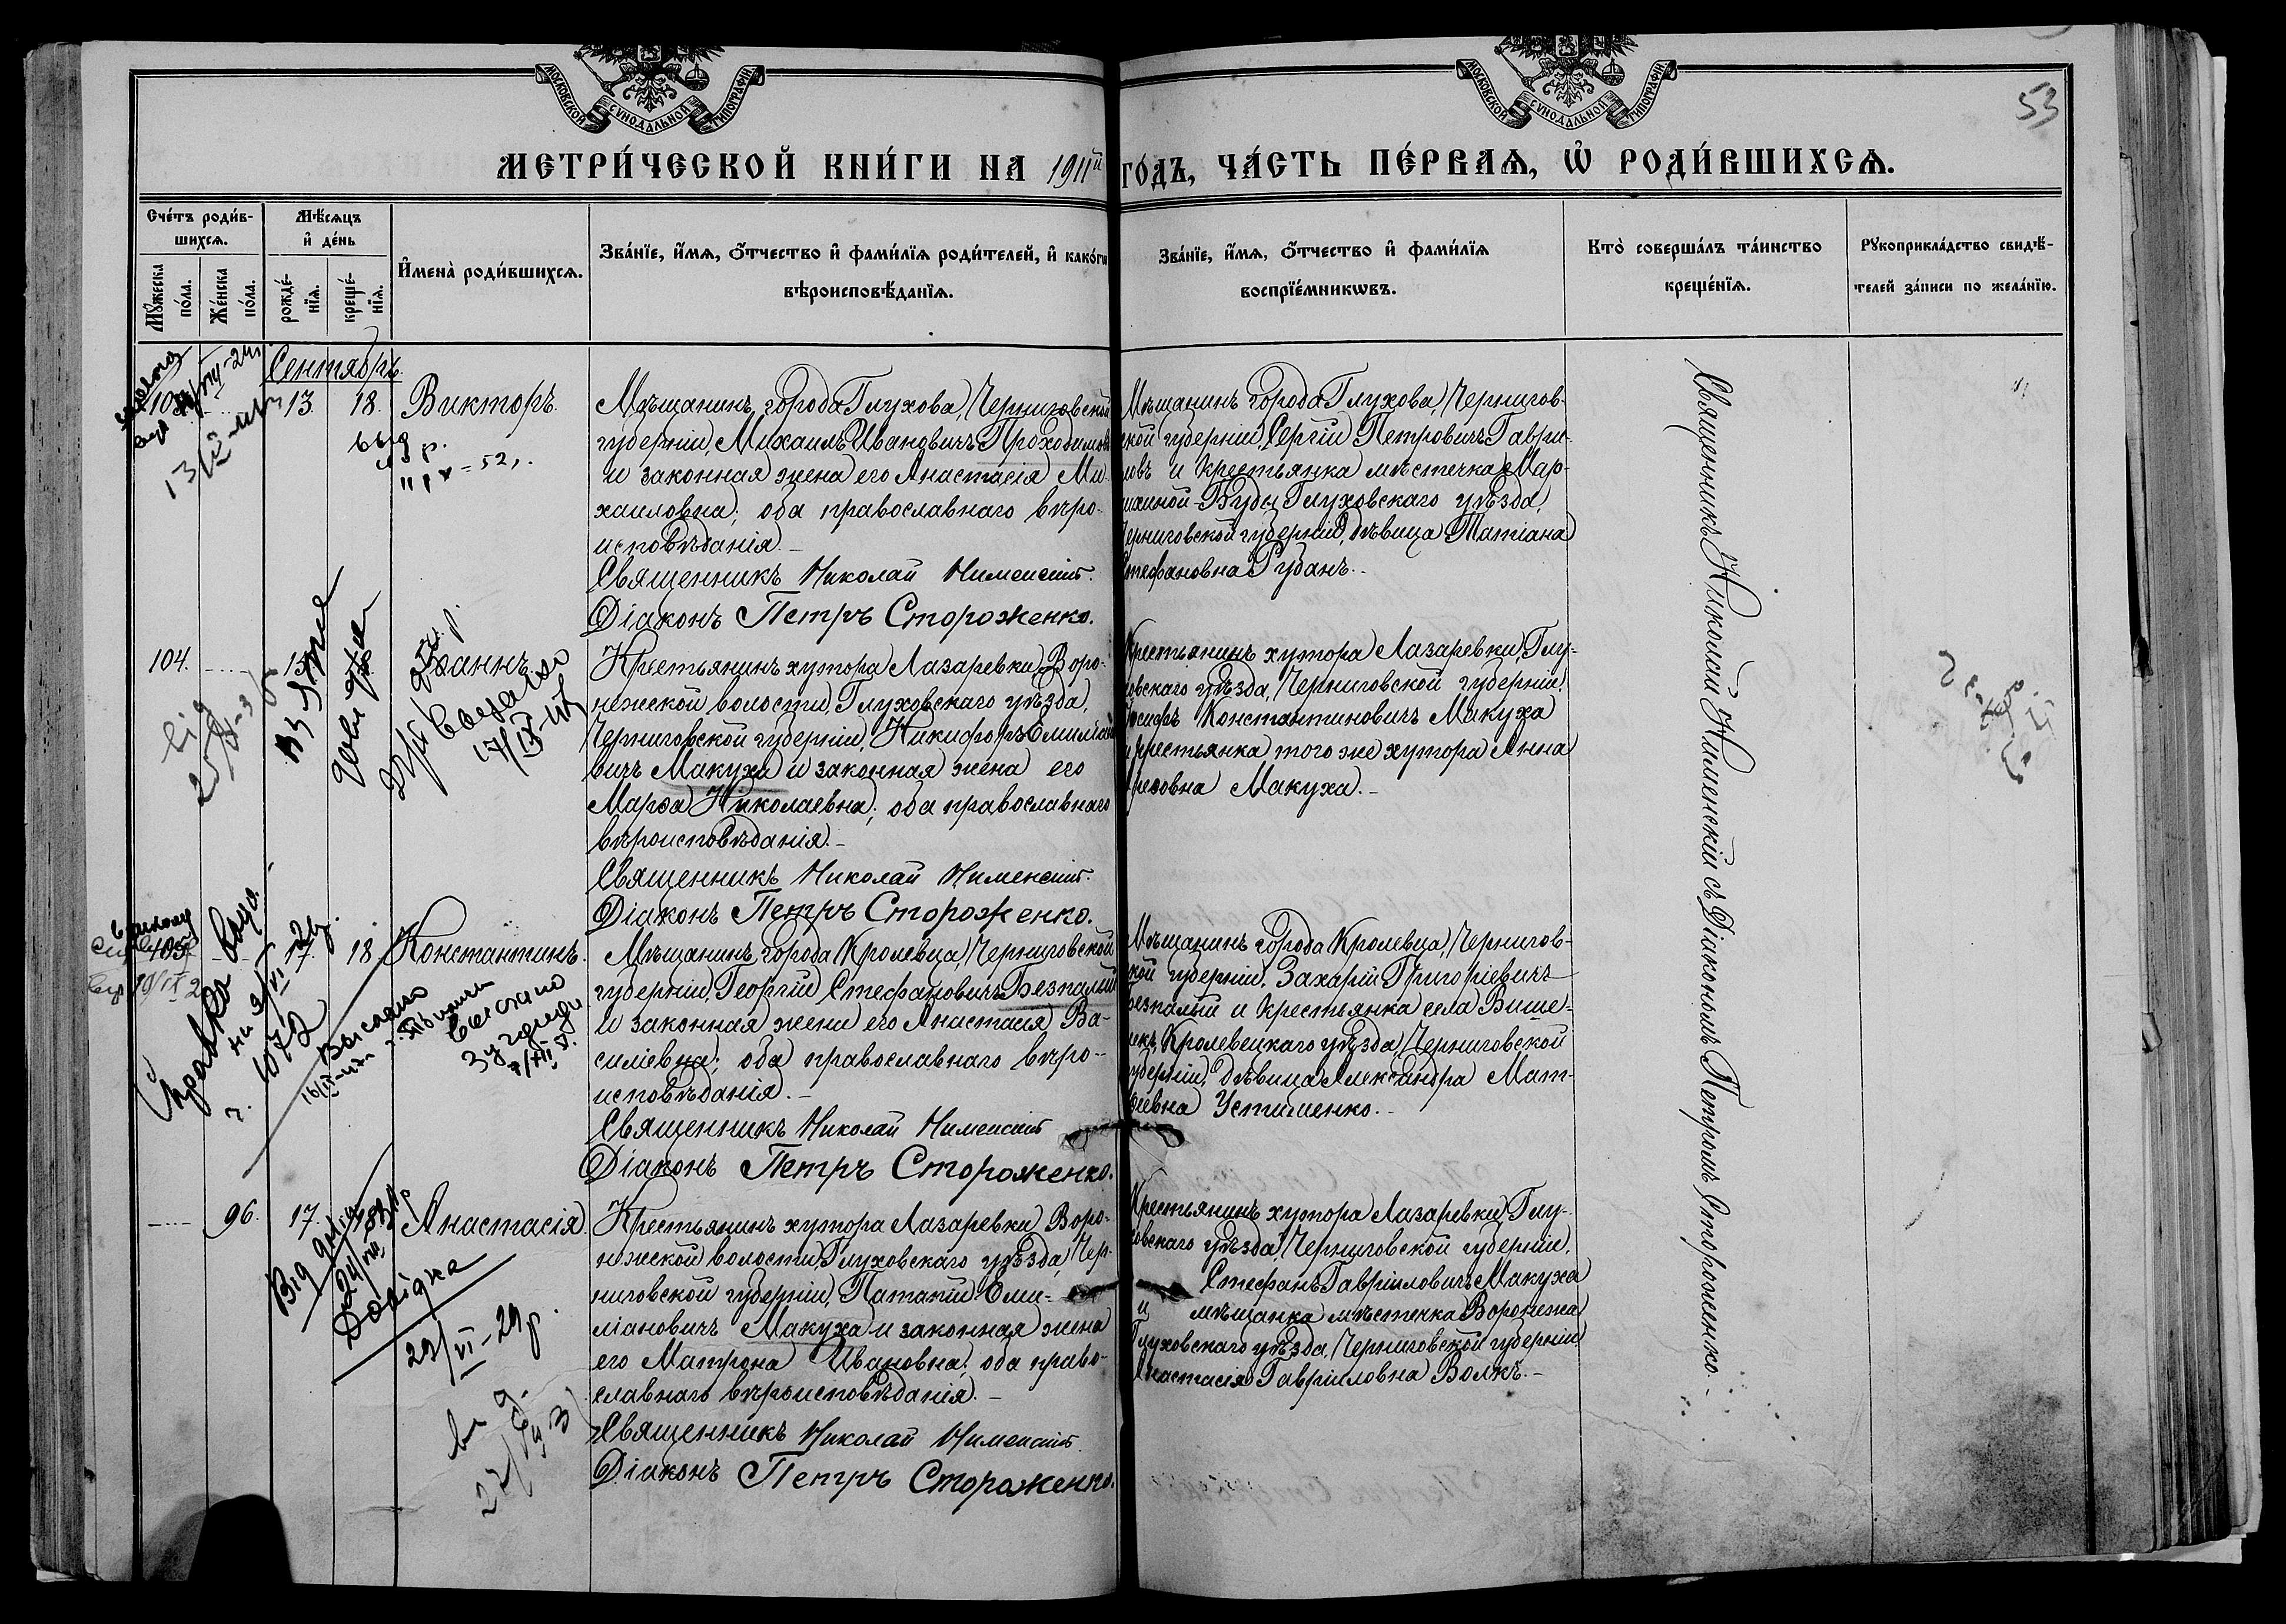 МОСКОВСКОЙ СѴНОДАЛЬНОЙ ТИПОГРАФІИ
МОСКОВСКОЙ СѴНОДАЛЬНОЙ ТИПОГРАФІИ
53
МЕТРИ́ЧЕСКОЙ КНИ́ГИ НА 1911й ГО́ДЪ, ЧА́СТЬ ПЕ́РВАѦ, Ѡ҆ РОДИ́ВШИХСѦ.
Сче́тъ роди́в-
шихсѧ.
Мꙋ́жеска
по́ла.
Же́нска
по́ла.
Мѣ́сѧцъ
и҆ де́нь
рожде́-
нїѧ.
креще́-
нїѧ.
И҆мена̀ роди́вшихсѧ.
Зва́нїе, и҆́мѧ, ѻ҆́тчество и҆ фами́лїѧ роди́телей, и҆ како́гѡ
вѣроисповѣ́данїѧ.
Зва́нїе, и҆́мѧ, ѻ҆́тчество и҆ фами́лїѧ
воспрїе́мникѡвъ.
Кто̀ соверша́лъ та́инство
креще́нїѧ.
Рꙋкоприкла́дство свидѣ́-
телей за́писи по жела́нїю.
Сентябрь.
13. 18. Викторъ.
Мѣщанинъ города Глухова, Черниговской
губерніи, Михаилъ Ивановичъ
и законная жена его Анастасія Ми-
хаиловна; оба православнаго вѣро-
исповѣданія.-
Священникъ Николай
Діаконъ Петръ Стороженко.
Мѣщанинъ города Глухова, Чернигов-
ской губерніи, Сергій Петровичъ Гаври-
ловъ и крестьянка мѣстечка Мар-
чихиной-Буды, Глуховскаго уѣзда,
Черниговской губерніи, дѣвица Татіана
Стефановна Рубанъ.-
104.
Крестьянинъ хутора Лазаревки, Воро-
нежской волости, Глуховскаго уѣзда,
Черниговской губерніи, Никифоръ Емиліано-
вичъ Макуха и законная жена его
Марѳа Николаевна; оба православнаго
вѣроисповѣданія.-
Священникъ Николай
Діаконъ Петръ Стороженко.
Крестьянинъ хутора Лазаревки, Глу-
ховскаго уѣзда, Черниговской губерніи,
Іосифъ Константиновичъ Макуха
и крестьянка того же хутора Анна
Макуха.-
выслано
17/IX-
105. 17. 18. Константинъ.
Мѣщанинъ города Кролевца, Черниговской
губерніи, Георгій Стефановичъ Безпалый
и законная жена его Анастасія Ва-
силіевна; оба православнаго вѣро-
исповѣданія.-
Священникъ Николай
Діаконъ Петръ Стороженко.
Мѣщанинъ города Кролевца, Чернигов-
ской губерніи, Захарій Григоріевичъ
Безпалый и крестьянка села
Кролевецкаго уѣзда, Черниговской
губерніи, дѣвица Александра Мат-
ѳіевна Устименко.-
1072
Выслано
выслано
96. 17. 18. Анастасія.
Крестьянинъ хутора Лазаревки, Воро-
нежской волости, Глуховскаго уѣзда, Чер-
ниговской губерніи, Патапій Еми-
ліановичъ Макуха и законная жена
его Матрона Ивановна; оба право-
славнаго вѣроисповѣданія.-
Священникъ Николай
Діаконъ Петръ Стороженко.
Крестьянинъ хутора Лазаревки, Глу-
ховскаго уѣзда, Черниговской губерніи,
Стефанъ Гавріиловичъ Макуха
и мѣщанка мѣстечка Воронежа
Глуховскаго уѣзда, Черниговской губерніи,
Анастасія Гавріиловна Волкъ.-
Довідка
29/VI-29р.
Священникъ Николай съ Діакономъ Петромъ Стороженко.-